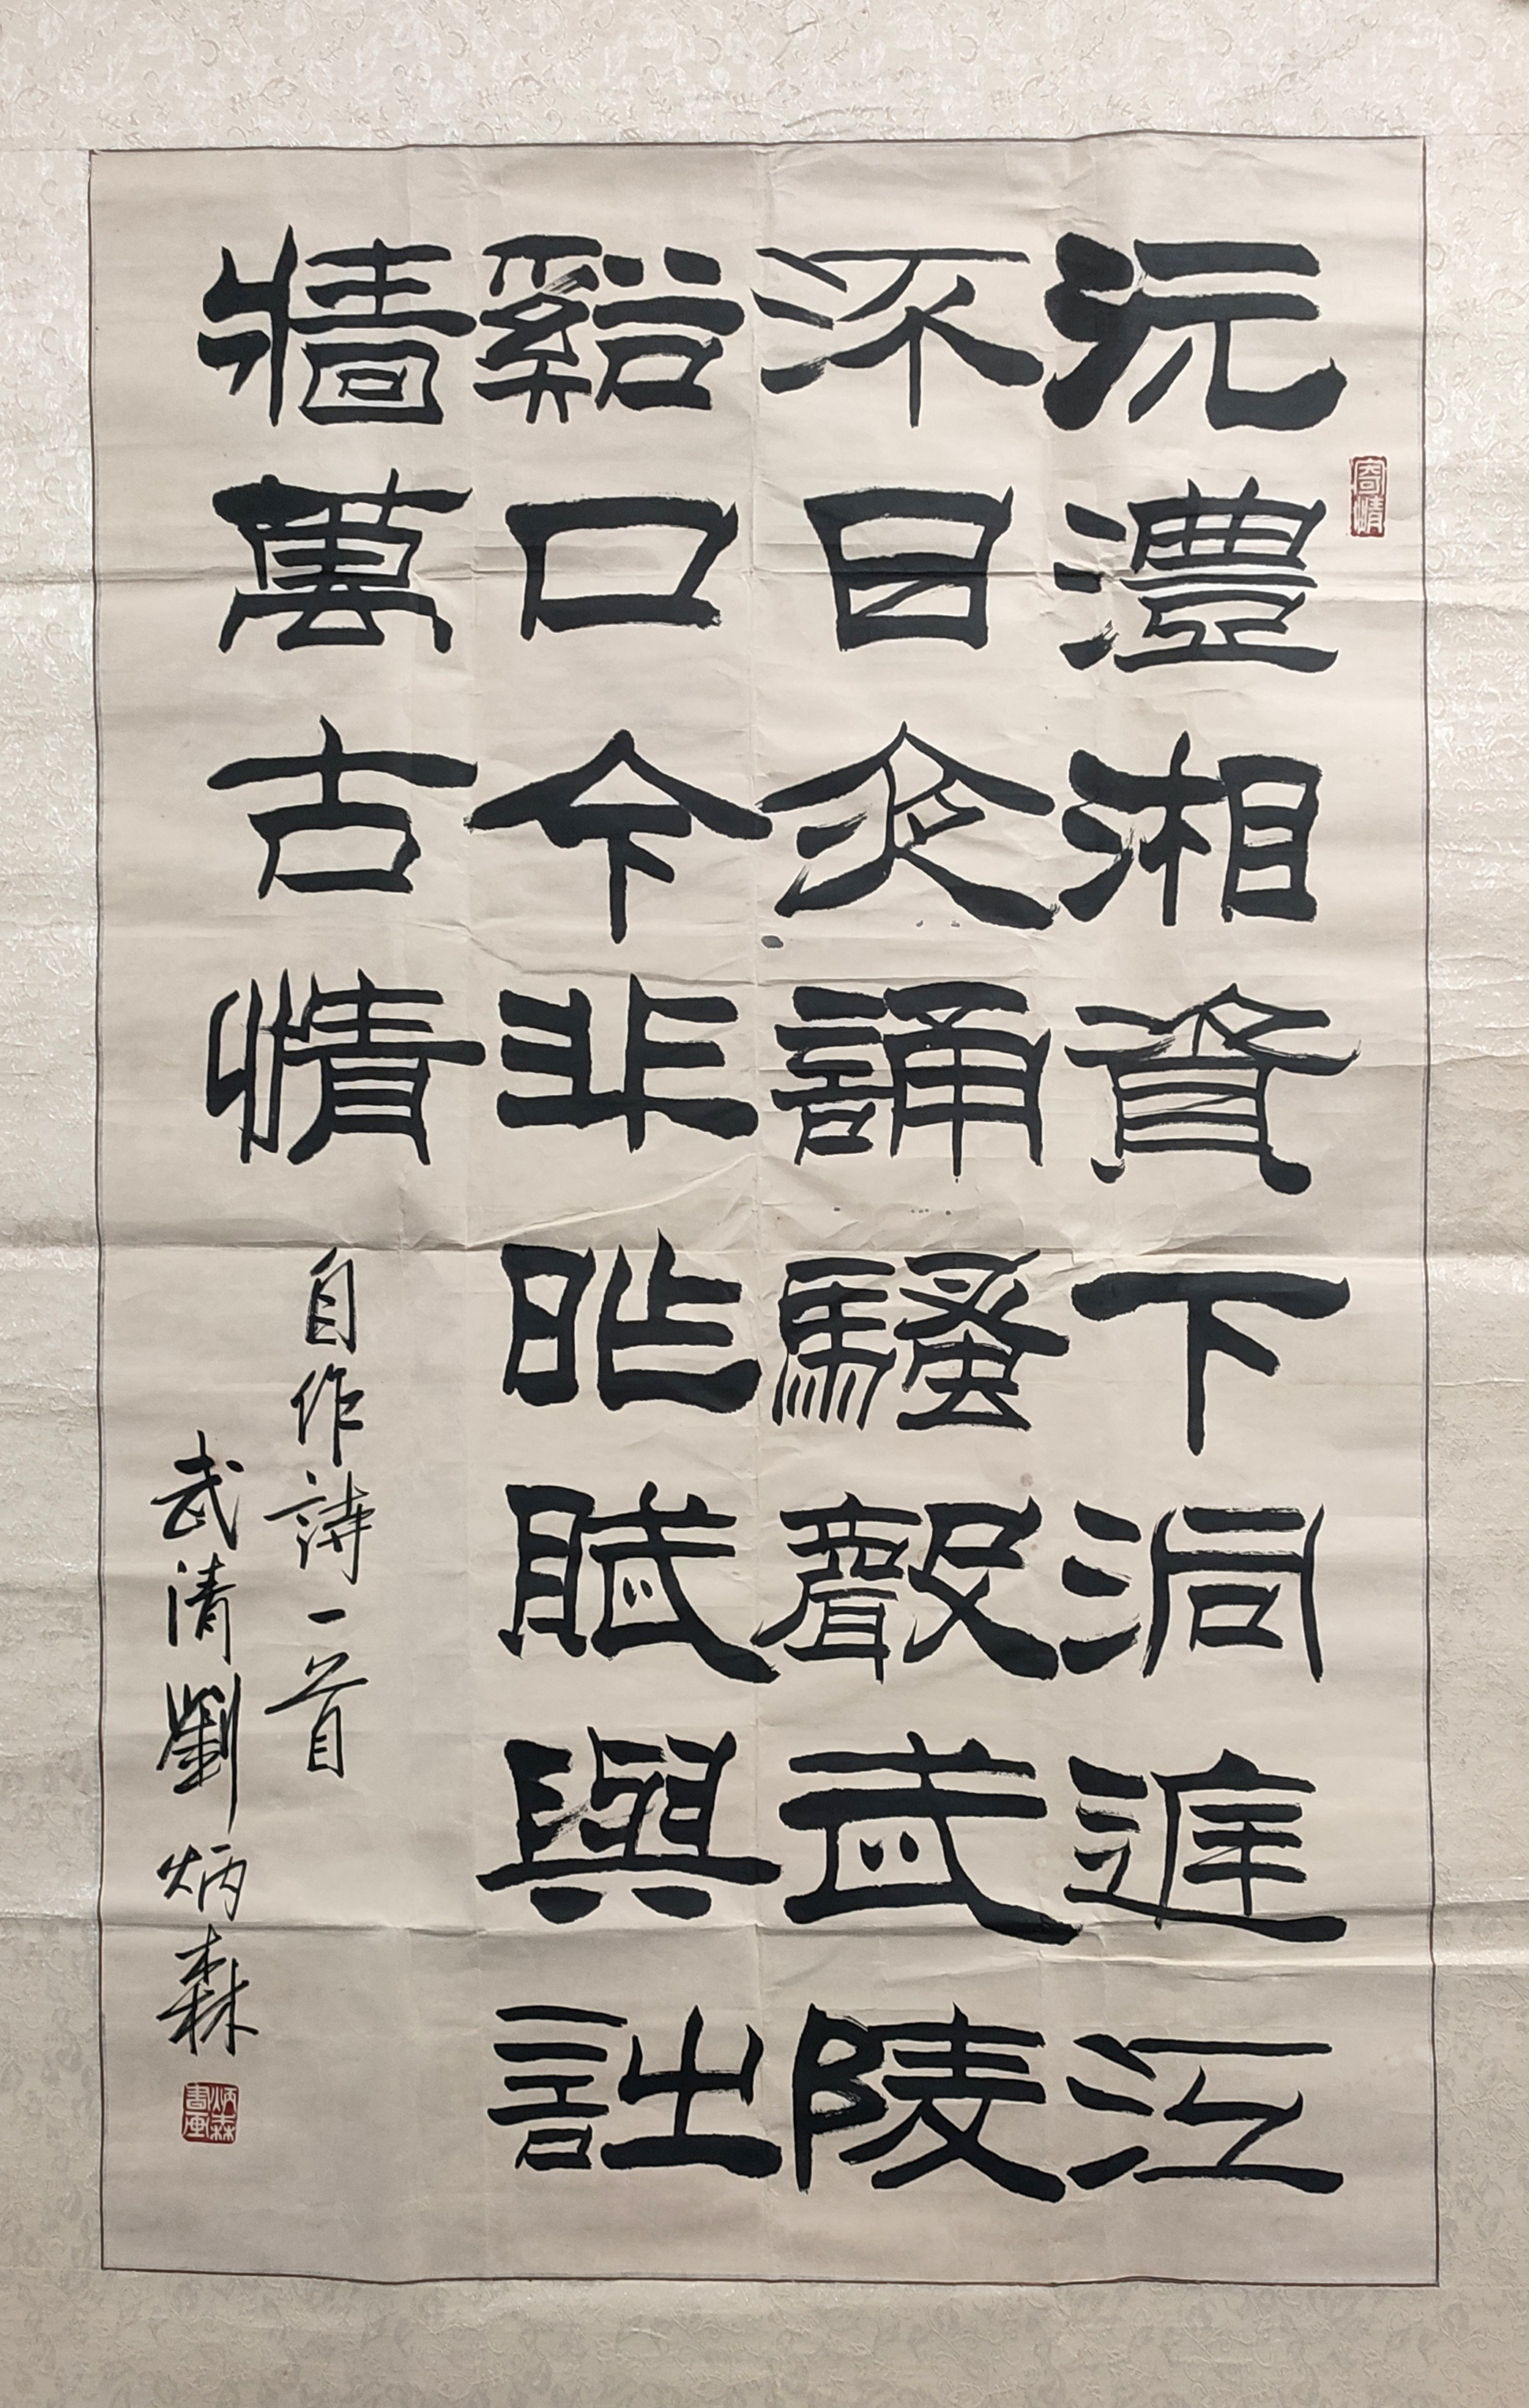 沅澧湘資下洞庭江
流日夜誦騷聲武陵
谿口今非昨賦與詩
牆萬古情
自作詩一首
武清劉炳森
寄情
炳森書画